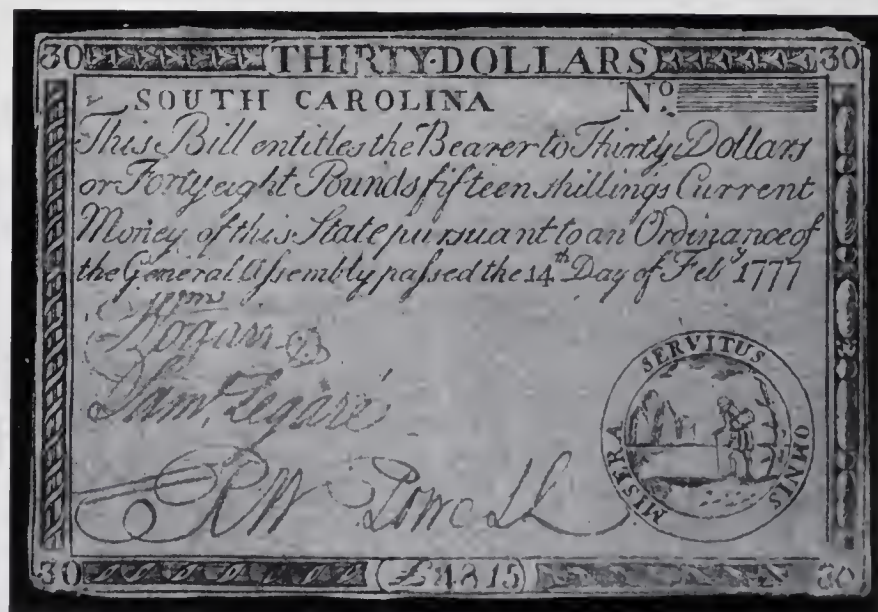 30 THIRTY·DOLLARS 30
SOUTH CAROLINA No.
This Bill entitles the Bearer to Thirty Dollars
or Forty eight Pounds fifteen shillings Current
Money of this State pursuant to an Ordinance of
the General Assembly passed the 14th Day of Feby 1777
Logan
Saml. Legaré
RW Powell
MISERA SERVITUS OMNIS
30 £48.15 30